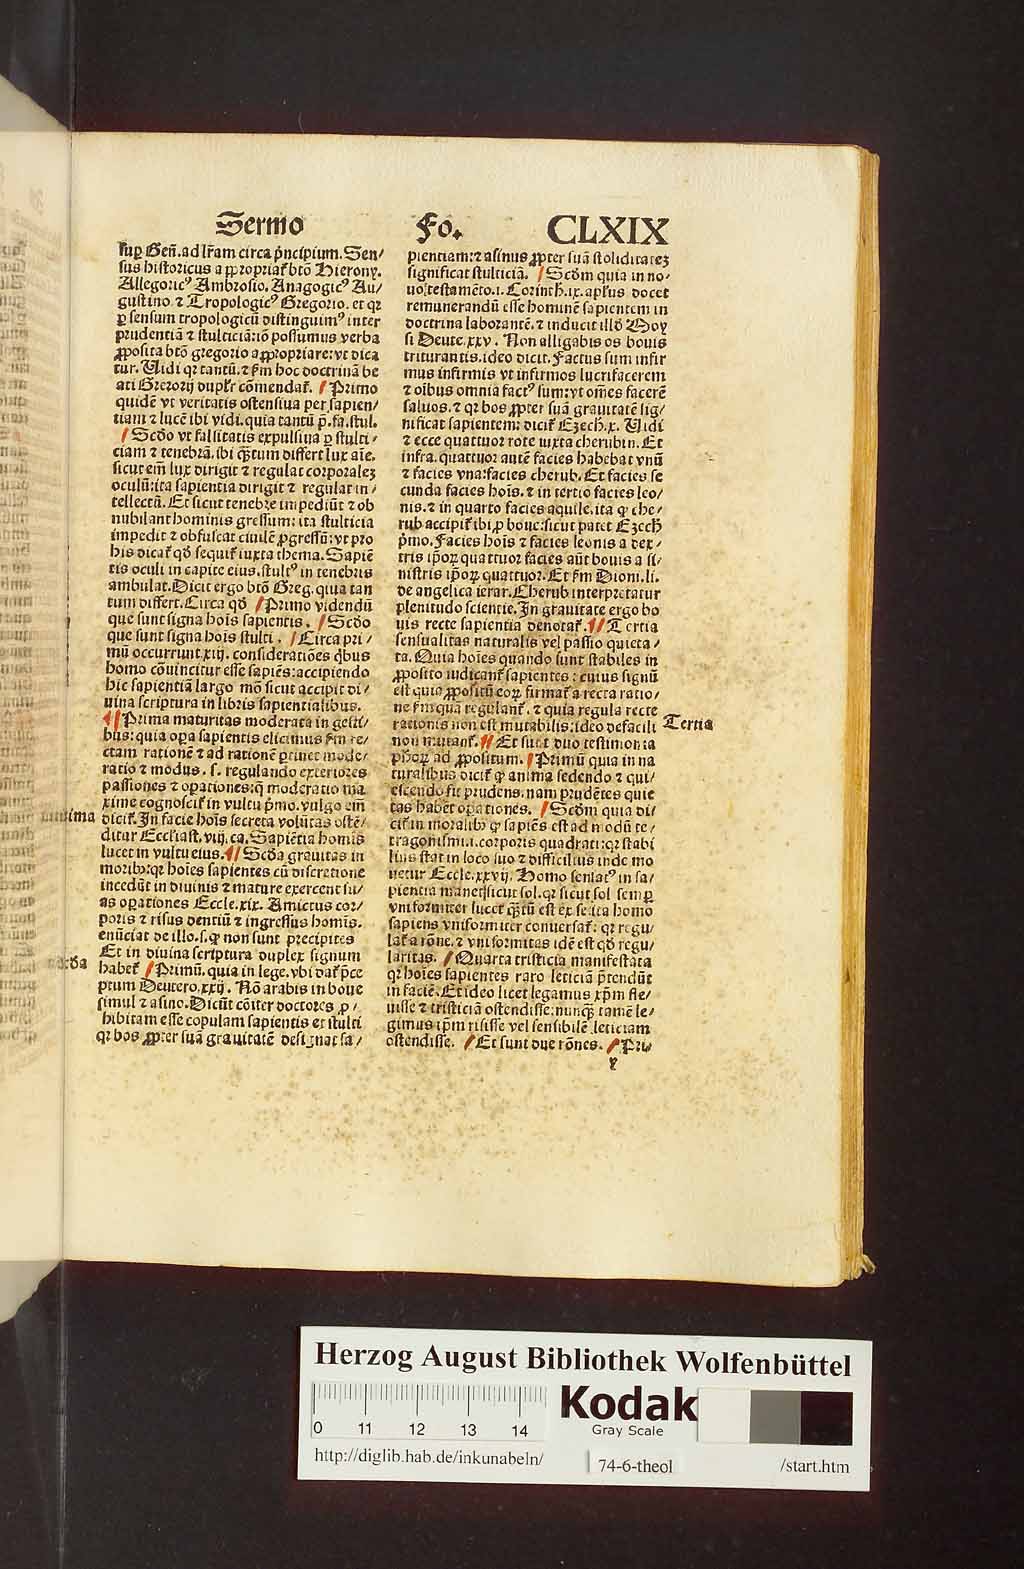 Sermo Fo. CLXIX
sup̱ Geñ. ad lr̃am circa p̃ncipium. Sen/
sus historicus a ꝓpriat᷑ btõ Hierony.
Allegoricꝰ Ambrosio. Anagogicꝰ Au/
gustino. ⁊ Tropologicꝰ Gregorio. et qꝛ
ꝑ sensum tropologicũ distinguimꝰ inter
prudentiã ⁊ stulticiã: iõ possumus verba
ꝓposita btõ gregorio aꝓpropriare: vt dica
tur. Uidi qꝛ tantũ. ⁊ fm̃ hoc doctrinã be
ati Gregorij duplr̃ cõmendat᷑. Primo
quidẽ vt veritatis ostensiua per sapien/
tiam ⁊ lucẽ ibi vidi. quia tantũ p̃. sa. stul.
Scdo vt falsitatis expulsiua ꝑ stulti/
ciam ⁊ tenebrã. ibi q̃tum differt lux a tñe.
sicut em̃ lux dirigit ⁊ regulat corporalez
oculũ: ita sapientia dirigit ⁊ regulat in/
tellectũ. Et sicut tenebre impediũt ⁊ ob
nubilant hominis gressum: ita stulticia
impedit ⁊ obfuscat ciuilẽ ꝓgressũ: vt pro
his dicat᷑ qđ sequit᷑ iuxta thema. Sapiẽ
tis oculi in capite eius. stultꝰ in tenebris
ambulat. Dicit ergo btõ Greg. quia tan
tum differt. Circa qđ Primo videndũ
que sunt signa hois sapientis. Scđo
que sunt signa hois stulti. Circa pri/
mũ occurrunt xiij. consideratiões q̃bus
homo cõuincitur esse sapiẽs: accipiendo
hic sapientiã largo mõ sicut accipit di/
uina scriptura in libris sapientialibus.
Prima maturitas moderata in gesti/
bus: quia opa sapientis elicimus fm̃ re/
ctam rationẽ ⁊ ad rationẽ ptinet mode/
ratio ⁊ modus. s. regulando exteriores
passiones ⁊ opationes: q̃ moderatio ma
xime cognoscit᷑ in vultu p̃mo. vulgo em̃
dicit᷑. In facie hoĩs secreta volũtas ostẽ/
ditur Eccl'iast. viij. ca. Sapiẽtia hominis
lucet in vultu eius. Scđa grauitas in
moribꝰ: qꝛ hoĩes sapientes cũ discretione
incedũt in diuinis ⁊ mature exercent su/
as opationes Eccle. xix. Amictus cor/
poris ⁊ risus dentiũ ⁊ ingressus homis.
enũciat de illo. s. ꝙ non sunt precipites
Et in diuina scriptura duplex signum
habet᷑ Primũ. quia in lege. vbi dat᷑ p̃ce
ptum Deutero. xxij. Nõ arabis in boue
simul ⁊ asino. Dicũt cõiter doctores p̱/
hibitam esse copulam sapientis et stulti
qꝛ bos ꝓpter suã grauitatẽ designat sa/
scđa
pientiam: ⁊ asinus ꝓpter suã stoliditatez
significat stulticiã. Scđm quia in no/
uo testamẽto. i. Corinth. ix. apl'us docet
remunerandũ esse hominẽ sapientem in
doctrina laborantẽ. ⁊ inducit illđ Moy
si Deute. xxv. Non alligabis os bouis
triturantis. ideo dicit. Factus sum infir
mus infirmis vt infirmos lucrifacerem
⁊ oĩbus omnia factꝰ sum: vt om̃es facerẽ
saluos. ⁊ qꝛ bos ꝓpter suã grauitatẽ sig/
nificat sapientem: dicit᷑ Ezech. x. Uidi
⁊ ecce quattuor rote iuxta cherubin. Et
infra. quattuor autẽ facies habebat vnũ
⁊ facies vna: facies cherub. Et facies se
cunda facies hoĩs. ⁊ in tertio facies leo/
nis. ⁊ in quarto facies aquile. ita ꝙ che/
rub accipit᷑ ibi ꝓ boue: sicut patet Ezech
p̃mo. Facies hoĩs ⁊ facies leonis a dex/
tris ip̃oꝝ quattuor facies aũt bouis a si/
nistris ip̃oꝝ quattuor. Et fm̃ Dioni. li.
de angelica ierar. Cherub interpretatur
plenitudo scientie. In grauitate ergo bo
uis recte sapientia denotat᷑. Tertia
sensualitas naturalis vel passio quieta/
ta. Quia hoĩes quando sunt stabiles in
ꝓposito iudicant᷑ sapientes: cuius signũ
est quia ꝓpositũ eoꝝ firmat᷑ a recta ratio/
ne fm̃ quã regulant᷑. ⁊ quia regula recte
rationis non est mutabilis: ideo defacili
non mutant᷑. Et sunt duo testimonia
ph̃oꝝ ad ꝓpositum. Primũ quia in na
turalibus dicit᷑ ꝙ anima sedendo ⁊ qui/
escendo fit prudens. nam prudẽtes quie
tas habẽt opationes. Scđm quia di/
cit᷑ in moralibꝰ ꝙ sapiẽs est ad modũ te/
tragonismi. i. corporis quadrati: qꝛ stabi
lius stat in loco suo ⁊ difficilius inde mo
uetur Eccle. xxvij. Homo sensatꝰ in sa/
pientia manet sicut sol. qꝛ sicut sol semꝑ
vniformiter lucet q̃tũ est ex se ita homo
sapiens vniformiter conuersat᷑: qꝛ regu/
lat᷑ a rõne. ⁊ vniformitas idẽ est qđ regu/
laritas. Quarta tristicia manifestata
qꝛ hoĩes sapientes raro leticiã p̃tendũt
in faciẽ. Et ideo licet legamus xp̃m fle/
uisse ⁊ tristiciã ostendisse: nunq̃ tamẽ le/
gimus ip̃m risisse vel sensibilẽ leticiam
ostendisse. Et sunt due rõnes. Pri/
y
Tertia
Herzog August Bibliothek Wolfenbüttel
0 11 12 13 14
Kodak
Gray Scale
http://diglib.hab.de/inkunabeln/ 74-6-theol /start.htm